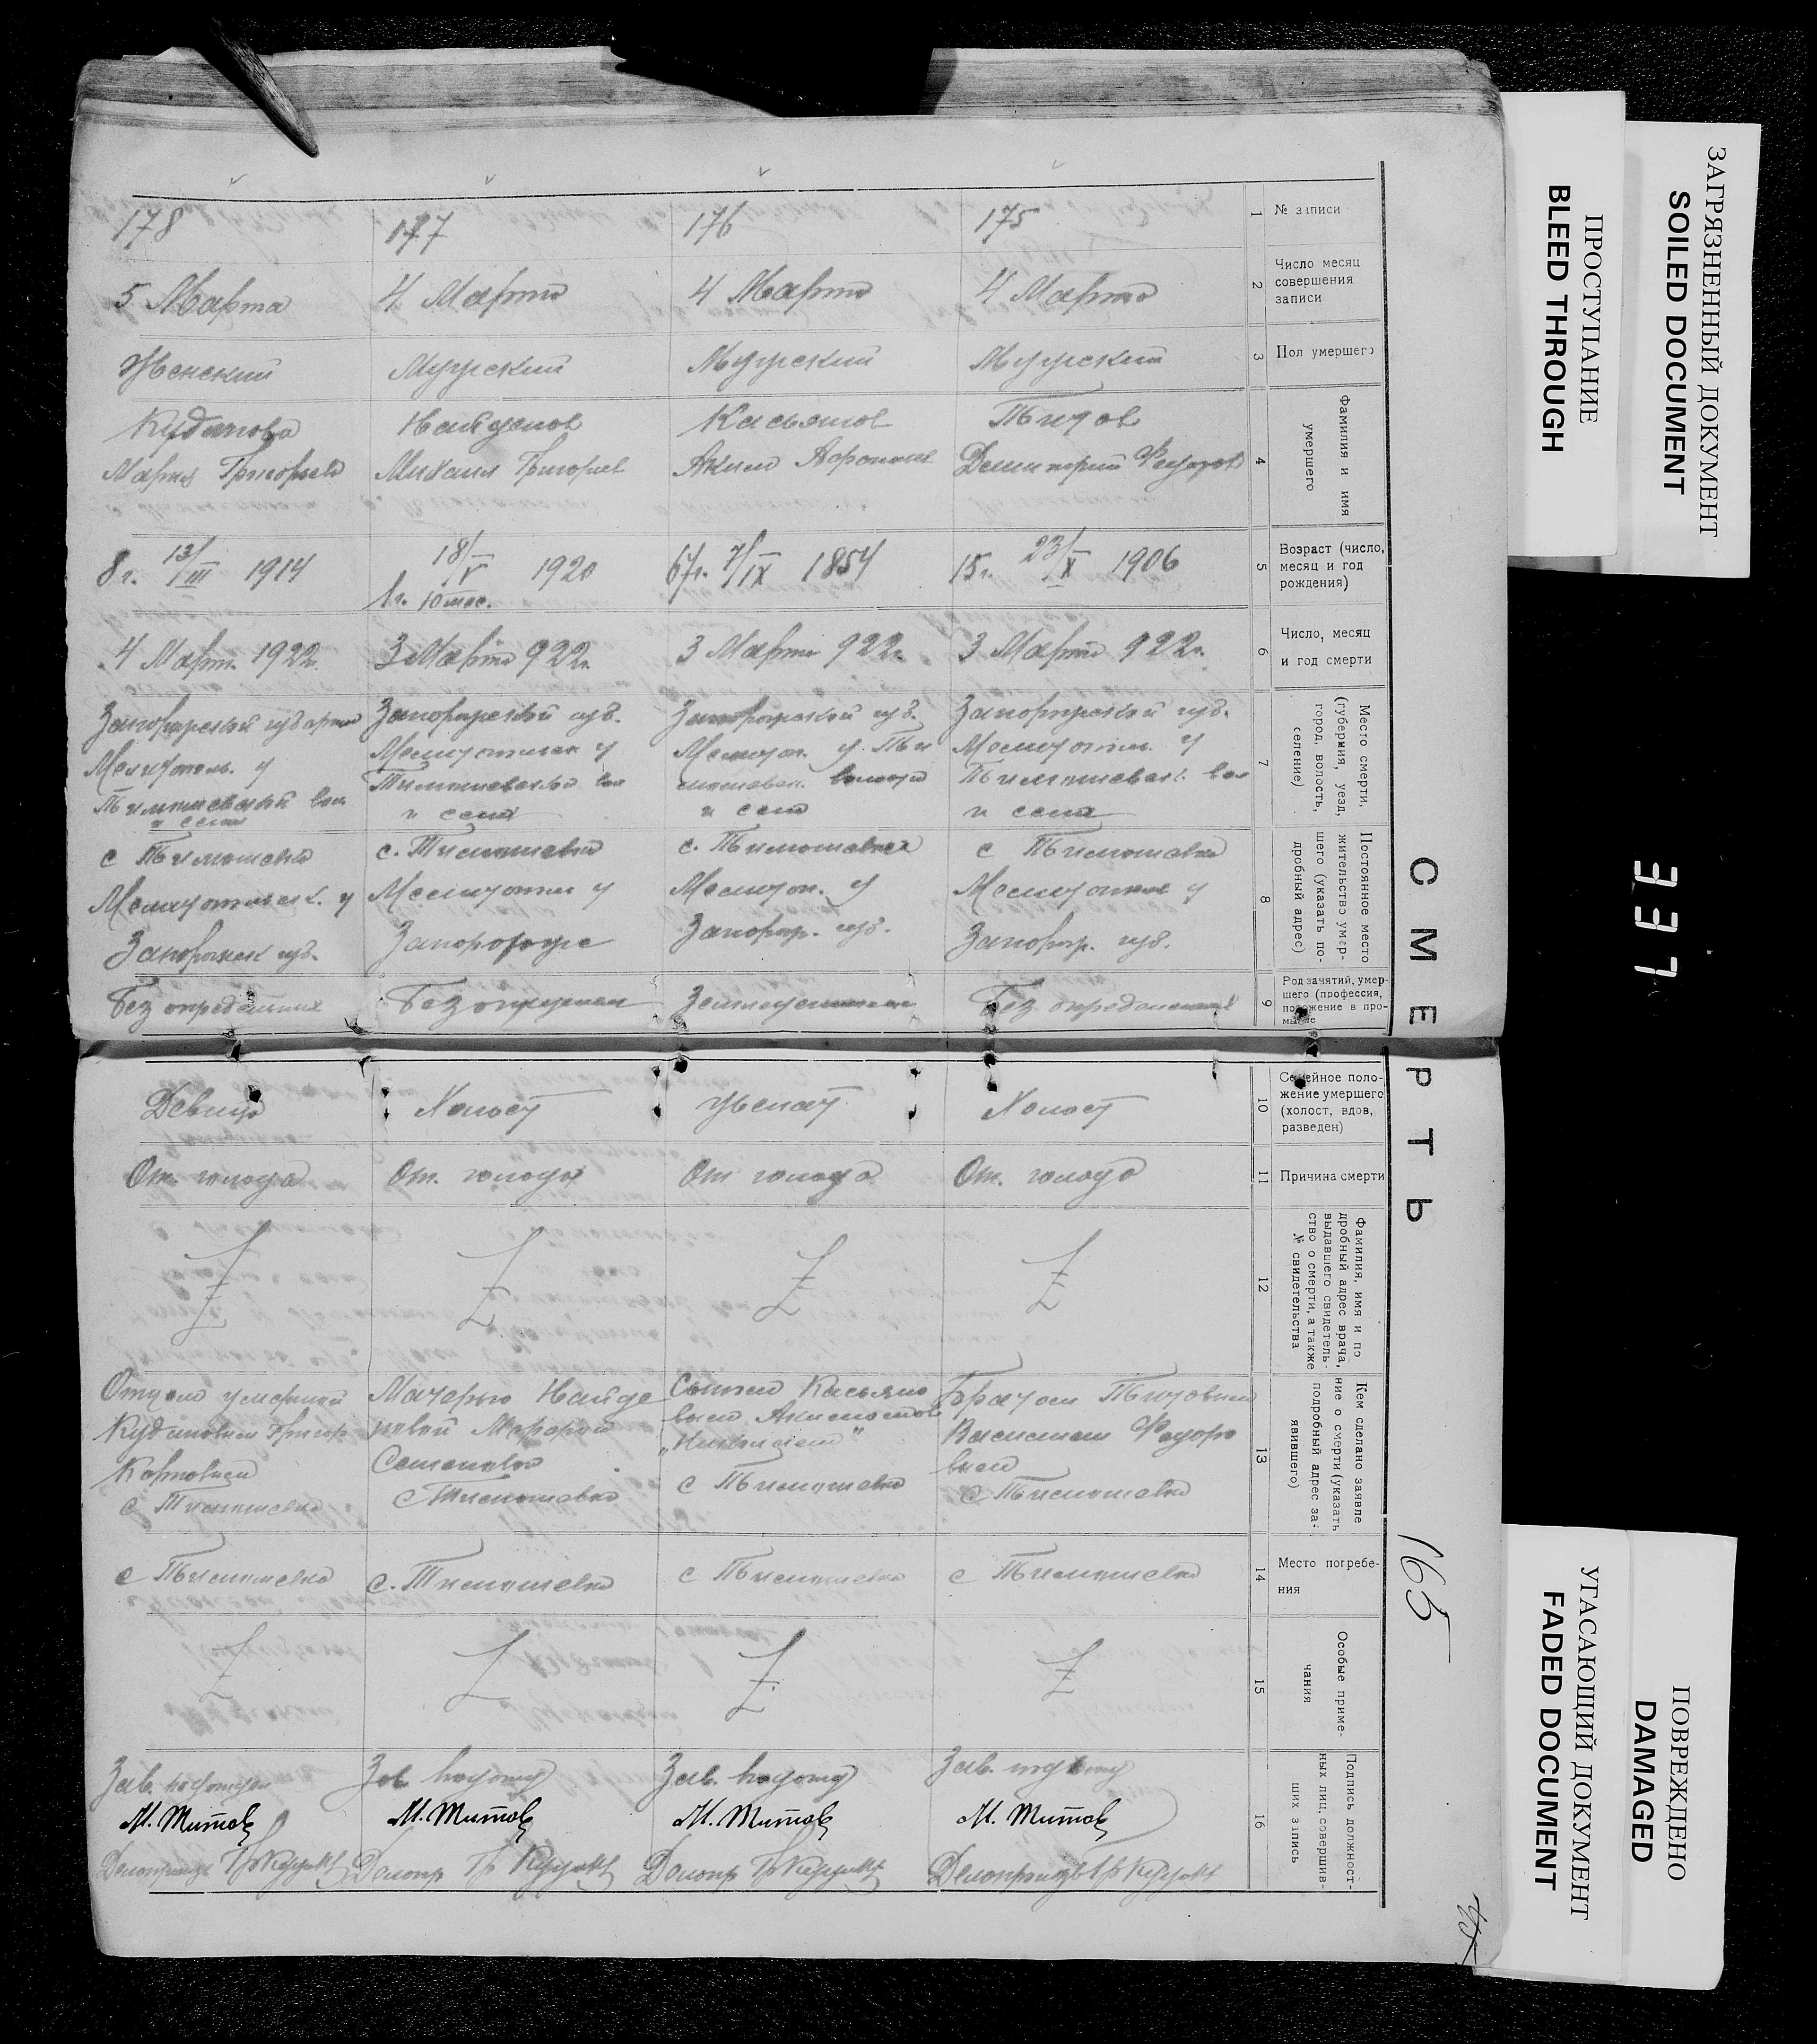 ЗАГРЯЗНЕННЫЙ ДОКУМЕНТ
SOILED DOCUMENT
ПРОСТУПАНИЕ
BLEED THROUGH
337
СМЕРТЬ
165
№ записи
1
175
176
177
178
Число месяц
совершения
записи
2
4 Марта
4 Марта
4 Марта
5 Марта
Пол умершего
3
Мужский
Мужский
Мужский
Женский
Фамилия и имя
умершего
4
Титов
Димитрий Федоров
Касьянов
Аким
Найденов
Михаил Григорьев
Кудинова
Мария Григорьева
Возраст (число,
месяц и год
рождения)
5
15 г. 23/X 1906
67 г. 7/IX 1854
18/V 1920
1 г. 10 мес.
8 г. 13/III 1914
Число, месяц
и год смерти
6
3 Марта 922 г.
3 Марта 922 г.
3 Марта 922 г.
4 Марта 1922 г.
Место смерти,
(губерния, уезд,
город, волость,
селение)
7
Запорожской губ.
Мелитопол. у
Тимошевск. вол
и села
Запорожской губ.
Мелитоп. у. Ти
мошевск. волости
и села
Запорожской губ.
Мелитопольск у
Тимошевской вол
и села
Запорожской
Мелитополь. у
Тимошевской вол.
и села
Постоянное место
жительство умер-
шего (указать по-
дробный адрес)
8
с Тимошевка
Мелитопол у
Запорож. губ.
с. Тимошевка
Мелитоп. у
Запорож. губ.
с. Тимошевка
Мелитопол у
Запорожс
с Тимошевка
Мелитопольск. у
Запорожск губ.
Род занятий, умер-
шего (профессия,
положение в про-
мысле
9
Без определенных
Земледелием
Без определен
Без определенных
Семейное поло-
жение умершего
(холост, вдов,
разведен)
10
Холост
Женат
Холост
Девица
Причина смерти
11
От. голода
От голода
От. голода
От. голода
Фамилия, имя и по
дробный адрес врача,
выдавшего свидетель-
ство о смерти, а также
№ свидетельства
12
Z
Z
Z
Z
Кем сделано заявле
ние о смерти (указать
подробный адрес за-
явившего)
13
Братом Титовым
Василием Федоро
вым
с Тимошевка
Сыном Касьяно
вым Акимовым
с Тимошевка
Матерью Найде
новой
Семеновой
с Тимошевка
Отцом умершей
Кудиновым Григор
Карповым
с Тимошевка
Место погребе-
ния
14
с Тимошевка
с Тимошевка
с. Тимошевка
с Тимошевка
Особые приме-
чания
15
Z
Z
Z
Z
Подпись должност-
ных лиц, совершив-
ших запись
16
Зав. подотд
М. Титов
Делопроизв
Зав. подотд
М. Титов
Делопр
Зав. подотд
М. Титов
Делопр
Зав. подотделом
М. Титов
Делопроизв
УГАСАЮЩИЙ ДОКУМЕНТ
FADED DOCUMENT
ПОВРЕЖДЕНО
DAMAGED